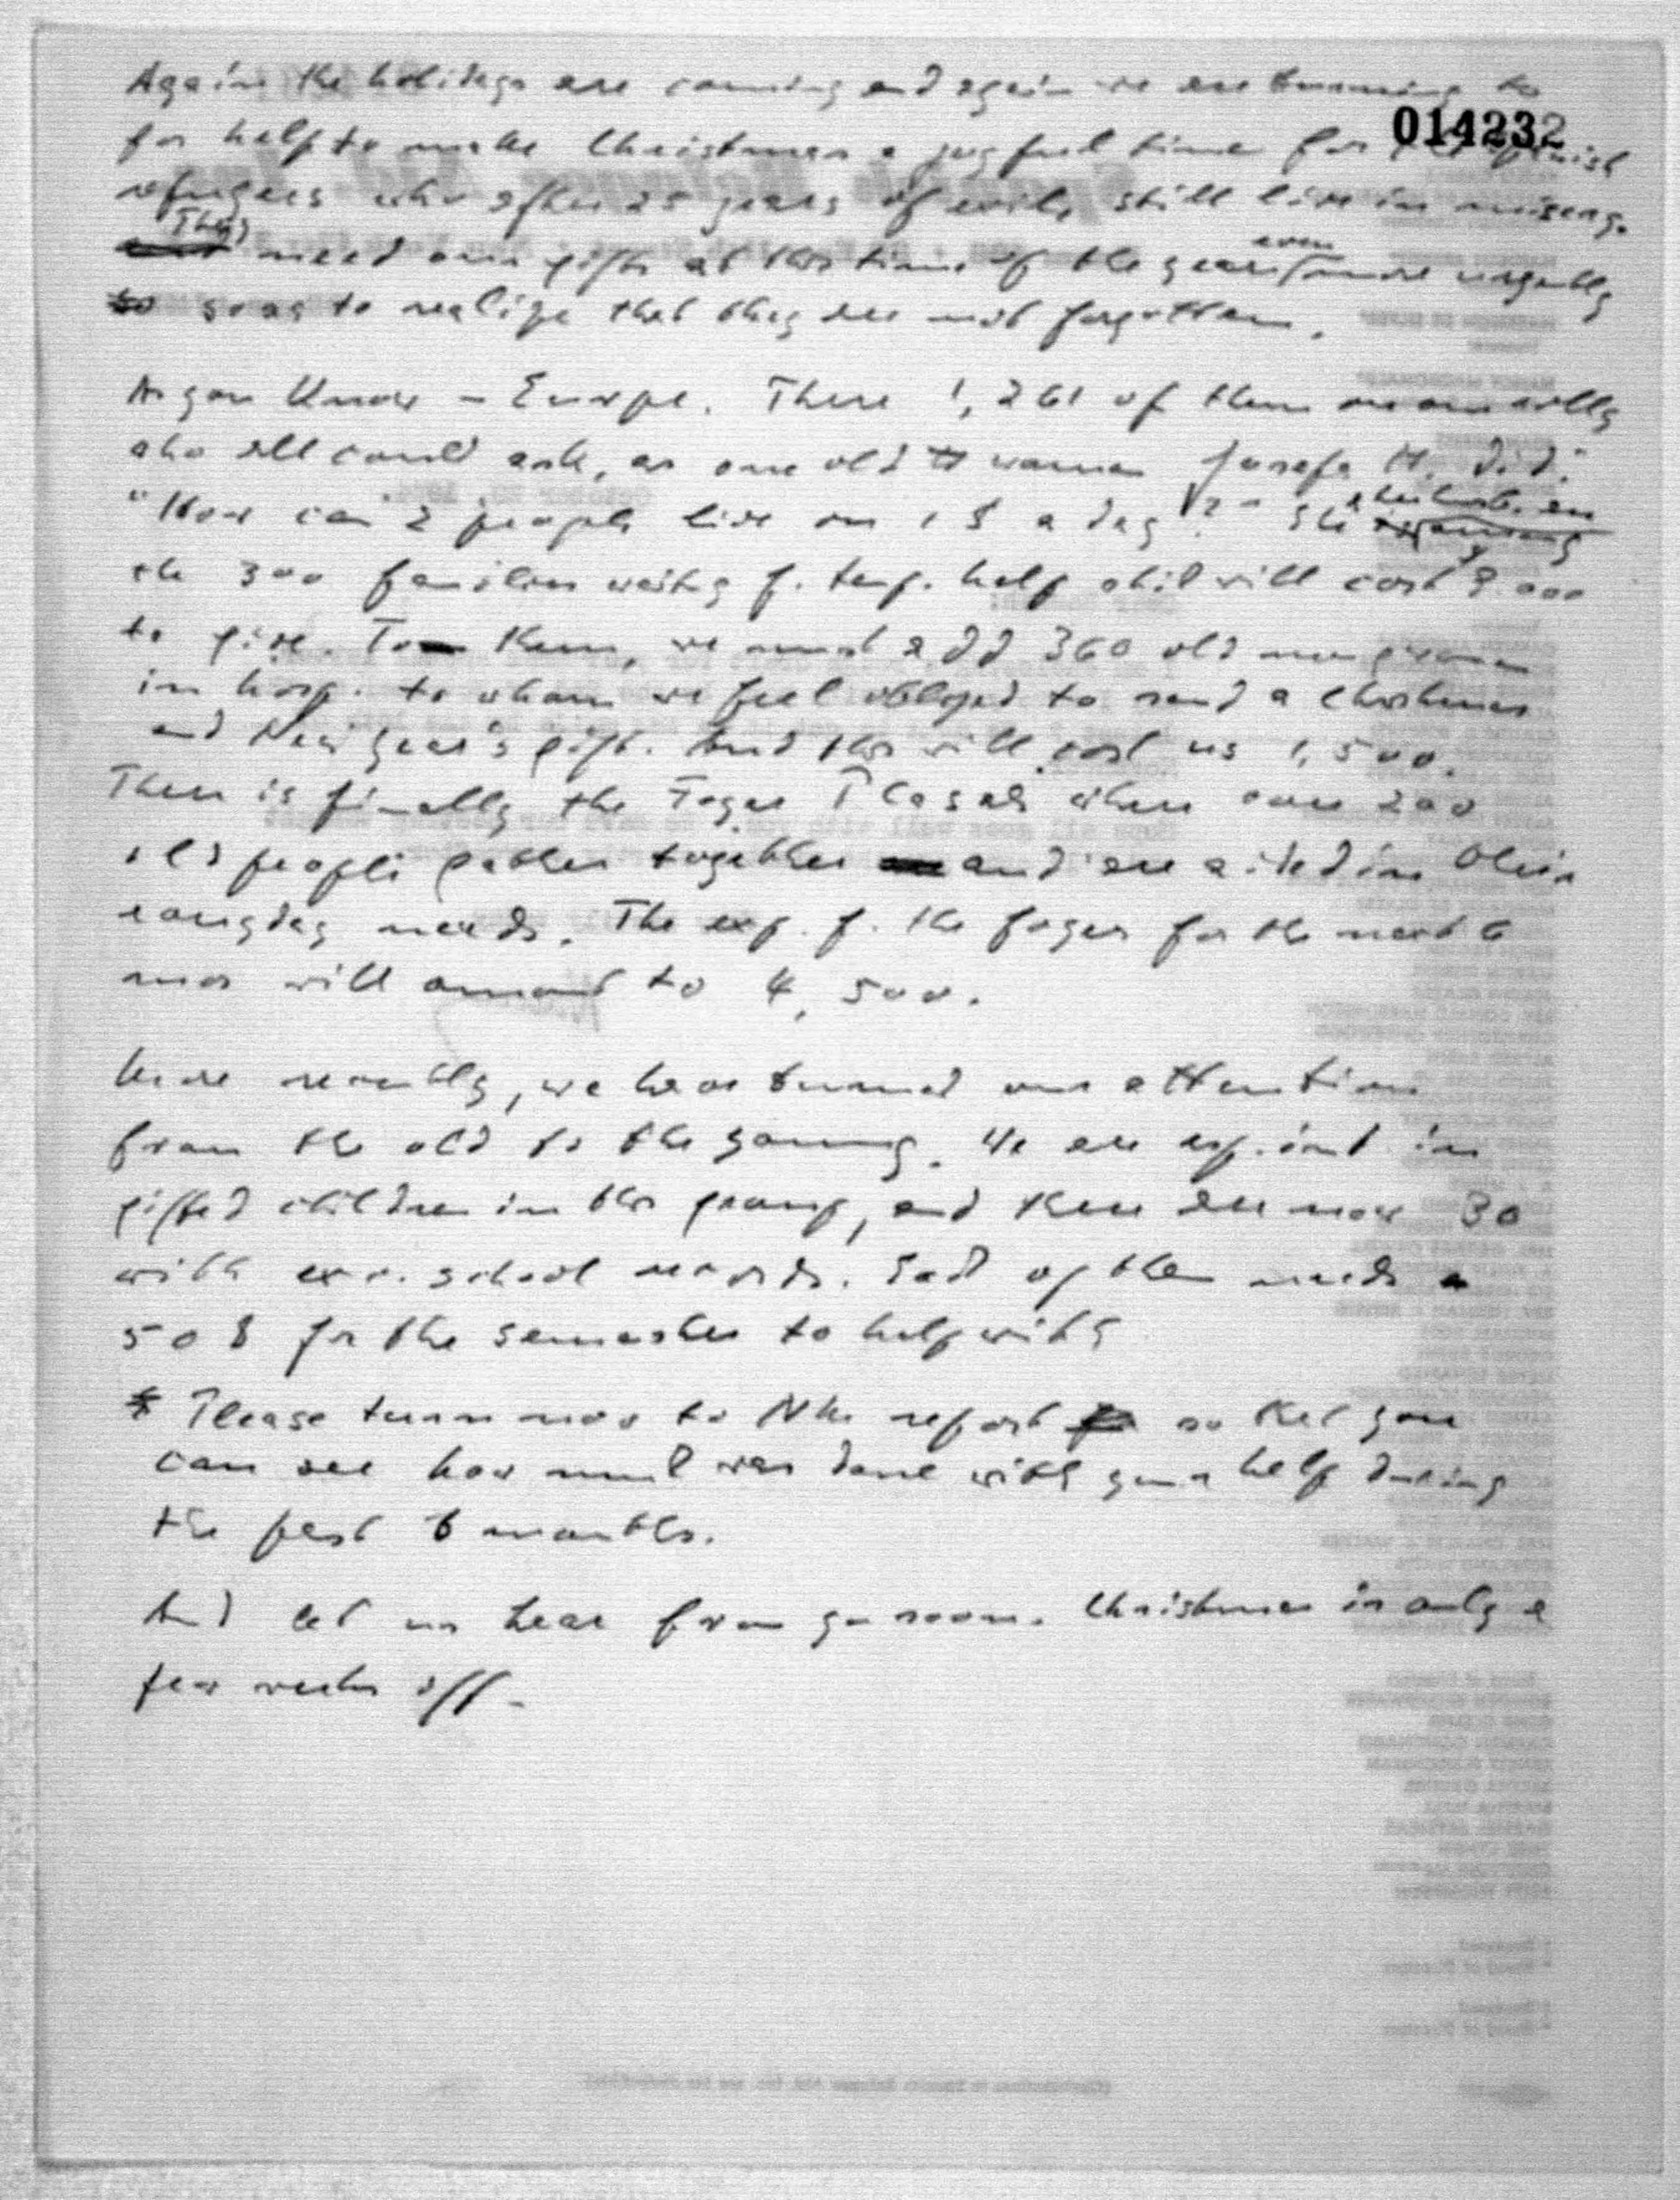 014232
Again the holidays are coming and again we are turning to
for help to make Christmas a joyful time for Spanish
refugees who after 25 years of exile still live in misery.
They need our gifts at this time of the year even more urgently
so as to realize that they are not forgotten.
As you know - Europe. There 1,261 of them
who all could ask, as one old woman Josefa M. did:
"How can 2 people live on 1 $ a day?" She
the 300 families waiting f. temp. help will cost 9.000
to give. To them, we must add 360 old men
in hosp. to whom we feel obliged to send a Christmas
and New Year's gift. And this will cost us 1,500.
There is finally the Foyer P Casals where over 200
old people gather together and are aided in their
everyday needs. The exp. f. the foyer for the next 6
mos will amount to 4,500.
More recently, we have turned our attention
from the old to the young. We are esp. int. in
gifted children in this group, and there are now 30
with exc. school records. Each of them needs
50 $ for the semester to help with
* Please turn now to NM's report so that you
can see how much was done with your help during
the past 6 months.
And let us hear from you soon. Christmas is only a
few weeks off -